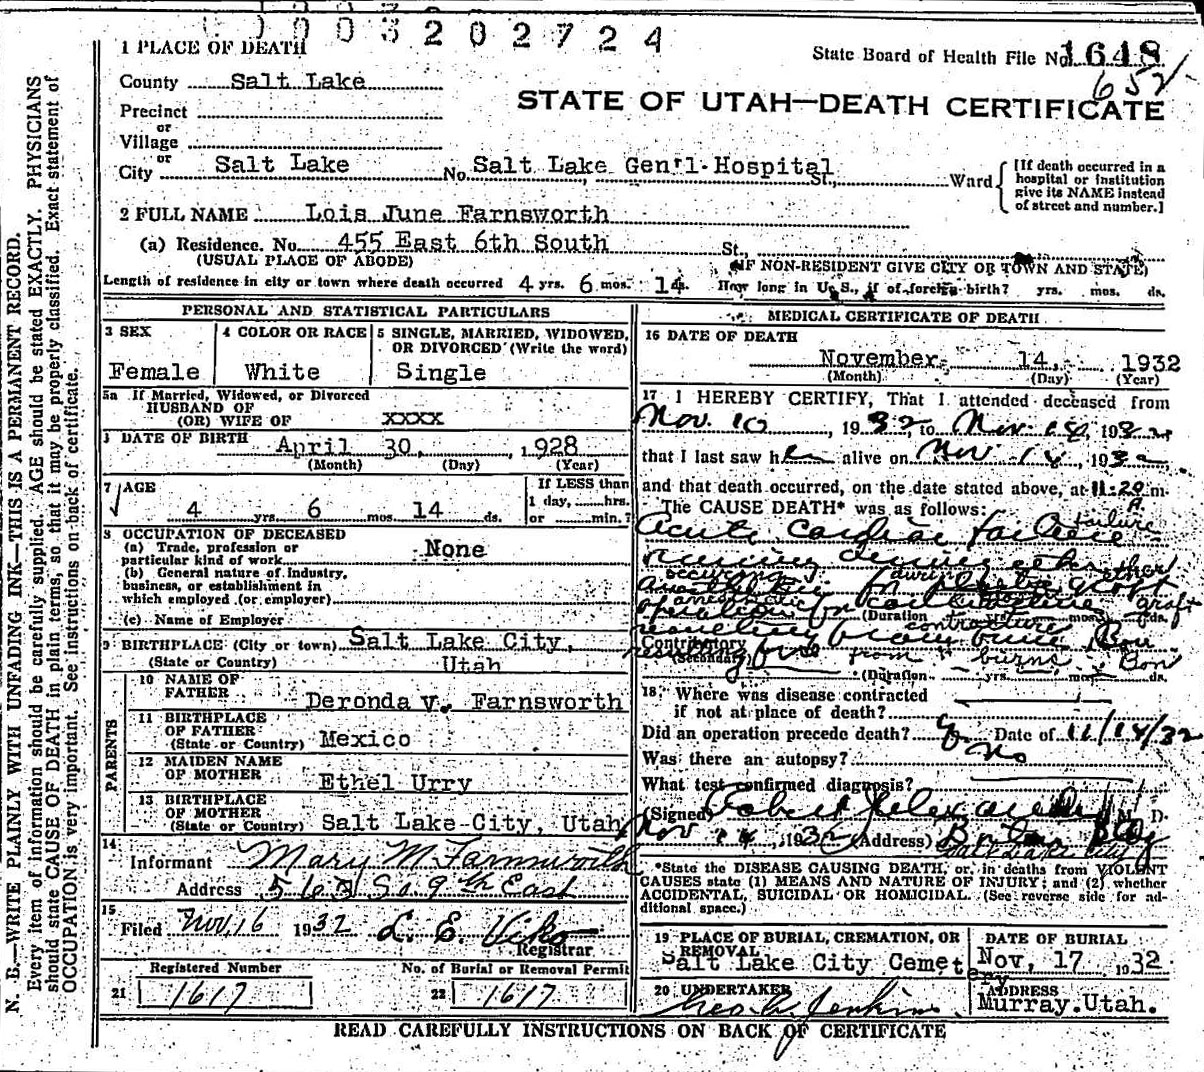 0003202724
1 PLACE OF DEATH
State Board of Health File No. 1648
652
County Salt Lake
STATE OF UTAH—DEATH CERTIFICATE
Precinct
or
Village
or
City Salt Lake No. Salt Lake Gen'l. Hospital St., Ward
[If death occurred in a
hospital or institution
give its NAME instead
of street and number.]
2 FULL NAME Lois June Farnsworth
(a) Residence. No. 455 East 6th South St.,
(USUAL PLACE OF ABODE) (IF NON-RESIDENT GIVE CITY OR TOWN AND STATE)
Length of residence in city or town where death occurred 4 yrs. 6 mos. 14 ds. How long in U. S., if of foreign birth? yrs. mos. ds.
PERSONAL AND STATISTICAL PARTICULARS
3 SEX
Female
4 COLOR OR RACE
White
5 SINGLE, MARRIED, WIDOWED,
OR DIVORCED (Write the word)
Single
5a If Married, Widowed, or Divorced
HUSBAND OF
(OR) WIFE OF xxxx
DATE OF BIRTH April 30, 1928
(Month) (Day) (Year)
7 AGE
4 yrs. 6 mos. 14 ds.
If LESS than
1 day, hrs.
or min.?
8 OCCUPATION OF DECEASED
(a) Trade, profession or
particular kind of work None
(b) General nature of industry,
business, or establishment in
which employed (or employer)
(c) Name of Employer
9 BIRTHPLACE (City or town) Salt Lake City,
(State or Country) Utah
PARENTS
10 NAME OF
FATHER Deronda V. Farnsworth
11 BIRTHPLACE
OF FATHER
(State or Country) Mexico
12 MAIDEN NAME
OF MOTHER Ethel Urry
13 BIRTHPLACE
OF MOTHER
(State or Country) Salt Lake City, Utah
14
Informant Mary M. Farnsworth
Address 563 So. 9th East
15
Filed Nov. 16 1932 L. E. Viko
Registrar
Registered Number
21 1617
No. of Burial or Removal Permit
22 1617
MEDICAL CERTIFICATE OF DEATH
16 DATE OF DEATH
November 14, 1932
(Month) (Day) (Year)
17 I HEREBY CERTIFY, That I attended deceased from
Nov. 10, 1932, to Nov. 14, 1932
that I last saw her alive on Nov 14, 1932
and that death occurred, on the date stated above, at 11:20 A m.
The CAUSE DEATH* was as follows:
Acute cardiac failure
failure
occurring during ether
graft
(Duration yrs. mos. ds.
Contributory
(Secondary)
from burns
(Duration yrs. mos. ds.
18 Where was disease contracted
if not at place of death?
Did an operation precede death? yes Date of 11/14/32
Was there an autopsy? no
What test confirmed diagnosis?
(Signed) Robert Alexander M. D.
Nov 14, 1932 (Address) Boston Bldg
Salt Lake City
*State the DISEASE CAUSING DEATH, or, in deaths from VIOLENT
CAUSES state (1) MEANS AND NATURE OF INJURY; and (2) whether
ACCIDENTAL, SUICIDAL OR HOMICIDAL. (See reverse side for ad-
ditional space.)
19 PLACE OF BURIAL, CREMATION, OR
REMOVAL
Salt Lake City Cemetery
DATE OF BURIAL
Nov, 17 1932
20 UNDERTAKER
Geo. A. Jenkins
ADDRESS
Murray.Utah.
READ CAREFULLY INSTRUCTIONS ON BACK OF CERTIFICATE
N. B.—WRITE PLAINLY WITH UNFADING INK—THIS IS A PERMANENT RECORD.
Every item of information should be carefully supplied. AGE should be stated EXACTLY. PHYSICIANS
should state CAUSE OF DEATH in plain terms, so that it may be properly classified. Exact statement of
OCCUPATION is very important. See instructions on back of certificate.